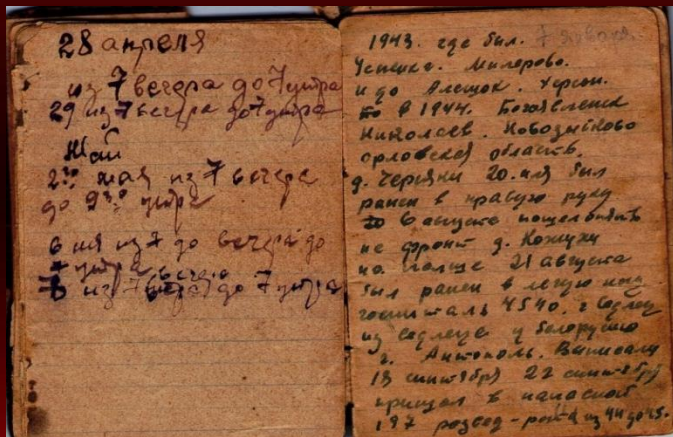 28 апреля
из 7 вечера до 7 утра
29 из 7 вечера до 7 утра
Май
2го мая из 7 вечера
до 9 утра
6 мая из 7 до вечера до
7 утра вечера
из 7 до 7 утра
1943. где был. 7 января
Успенка. Милорово.
и до Алешок. Херсон.
В 1944. Богоявленск
Николаев. Новозыбково
орловской область.
д. Черняни 20. мля был
ранен в правую руку
6 августа пошел опять
на фронт д. Кожухи
на 21 августа
был ранен в легую ногу
госпиталь 4540. г Седлец
из седлеца у белорусию
г. Антополь. Выписали
13 синтября 22 синтября
пришел в напасной
197 розвед-рота из 44 до 45.